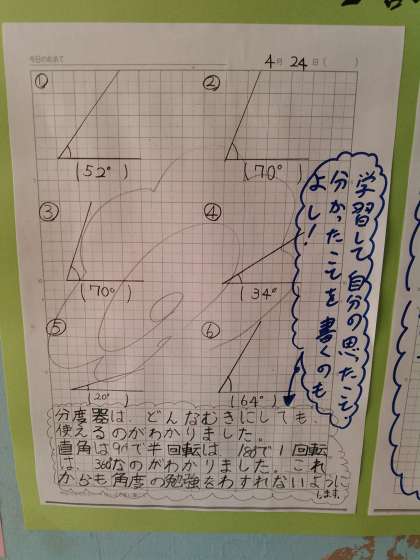 今日のめあて
4月24日( )
①
②
(52°)
(70°)
③
④
(70°)
(34°)
⑤
⑥
(20°)
(64°)
学習して自分の思ったことや
分かったことを書くのも
よし!
分度器は、どんなむきにしても、
使えるのがわかりました。
直角は90°で半回転は180°で1回転
は、360°なのがわかりました。これ
からも角度の勉強をわすれないようにします。